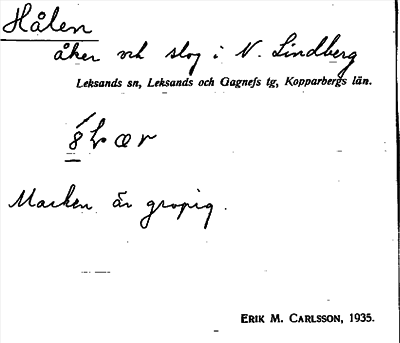 Hålen
åker och slog i N. Lindberg
Leksands sn, Leksands och Gagnefs tg, Kopparbergs län.
Marken är gropig.
ERIK M. CARLSSON, 1935.